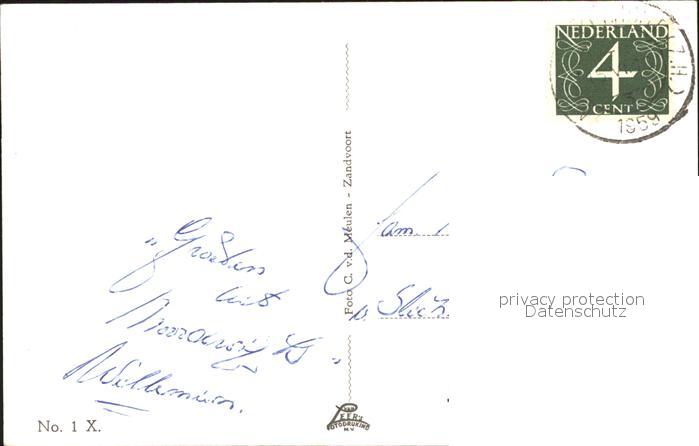 NEDERLAND
4
CENT
1959
Foto C. v.d. Meulen - Zandvoort
"Groeten
uit
Noordwijk"
Willemien.
fam.
privacy protection
Datenschutz
VAN
LEER'S
FOTODRUKIND
N.V.
No. 1 X.